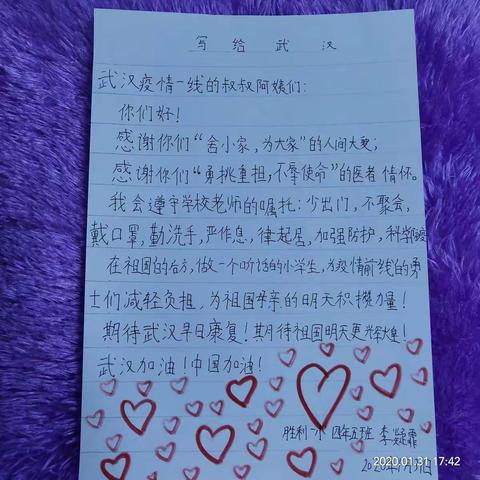 写给武汉
武汉疫情一线的叔叔阿姨们：
你们好！
感谢你们“舍小家，为大家”的人间大爱；
感谢你们“勇挑重担，不辱使命”的医者情怀。
我会遵守学校老师的嘱托：少出门，不聚会，
戴口罩，勤洗手，严作息，律起居，加强防护，科学
在祖国的后方，做一个听话的小学生，为疫情前线的勇
士们减轻负担，为祖国母亲的明天积攒力量！
期待武汉早日康复！期待祖国明天更辉煌！
武汉加油！中国加油！
胜利一小 四年五班 李
2020.01.31 17:42